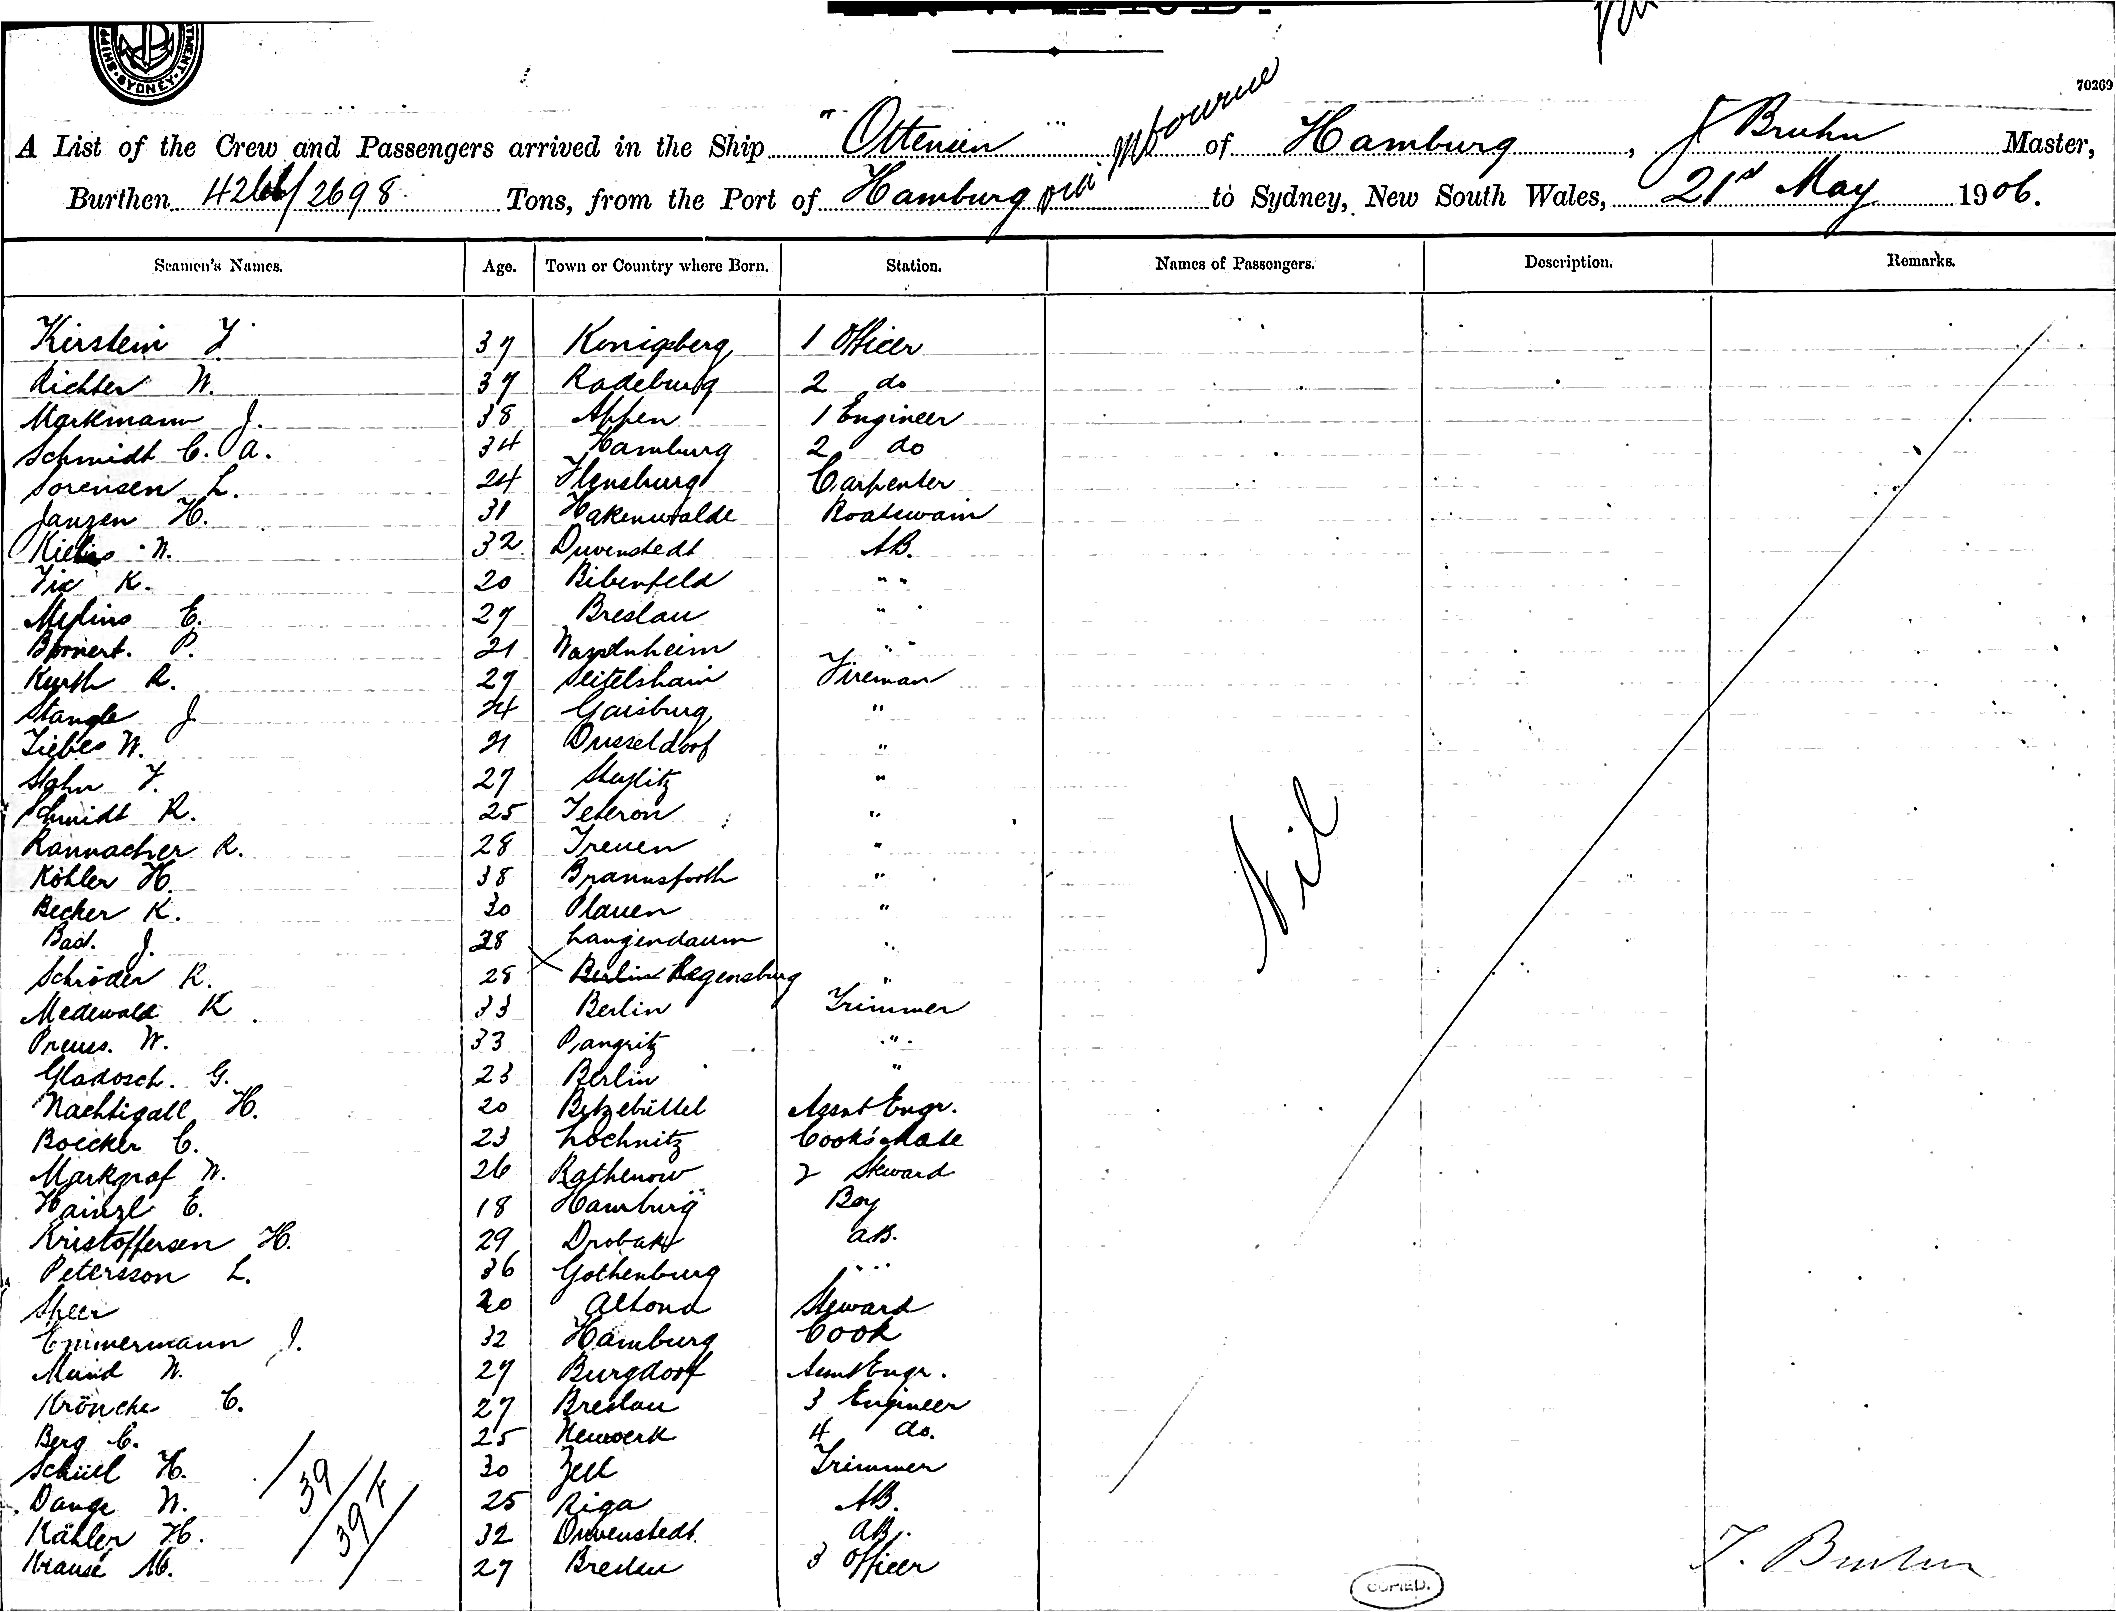 SYDNEY
70269
A List of the Crew and Passengers arrived in the Ship "Ottensen" of Hamburg, J Bruhn Master,
Burthen 4266/2698 Tons, from the Port of Hamburg via Melbourne to Sydney, New South Wales, 21st May 1906.
Seamen's Names. Age. Town or Country where Born. Station. Names of Passengers. Description. Remarks.
Kirstein F. 37 Konigsberg 1 Officer
Richter W. 37 Radeburg 2 do
Markmann J. 38 Appen 1 Engineer
Schmidt C. A. 34 Hamburg 2 do
Sorensen L. 24 Flensburg Carpenter
Janzen H. 31 Hakenwalde Boatswain
W. 32 Duvenstedt AB.
Fix K. 20 Bibenfeld " "
Mylius E. 27 Breslau "
P. 21 " "
Kurth R. 27 Seitelshain Fireman
Stangle J 24 Gaisburg "
Liebes W. 21 Dusseldorf "
Stohn F. 27 Steglitz "
Schmidt R. 25 Teteron "
Rannacher R. 28 Treuen "
Köhler H. 38 Braunsforth "
Becker K. 30 Plauen "
Bad. J. 28 Langendaum "
Schröder R. 28 Berlin Regensburg "
Medewald K. 33 Berlin Trimmer
Preuss. W. 33 Pangritz "
Gladosch. G. 23 Berlin "
Nachtigall H. 20 Betzebüttel Assnt Engr.
Boecker C. 23 Lochnitz Cook's Mate
Markgraf W. 26 Rathenow 2 Steward
Hainzl E. 18 Hamburg Boy
Kristoffersen H. 29 Drobak AB.
Petersson L. 36 Gothenburg " "
Speer 20 Altona Steward
Emmermann J. 32 Hamburg Cook
Mund W. 27 Burgdorf Assnt Engr.
Kröncke C. 27 Breslau 3 Engineer
Berg C. 25 Neuwerk 4 do.
Schüel H. 30 Zell Trimmer
Dange W. 25 Riga AB.
Kähler H. 32 Duvenstedt AB.
Krause M. 27 Breslau 3 Officer
Nil
39
39
J. Bruhn
COPIED.